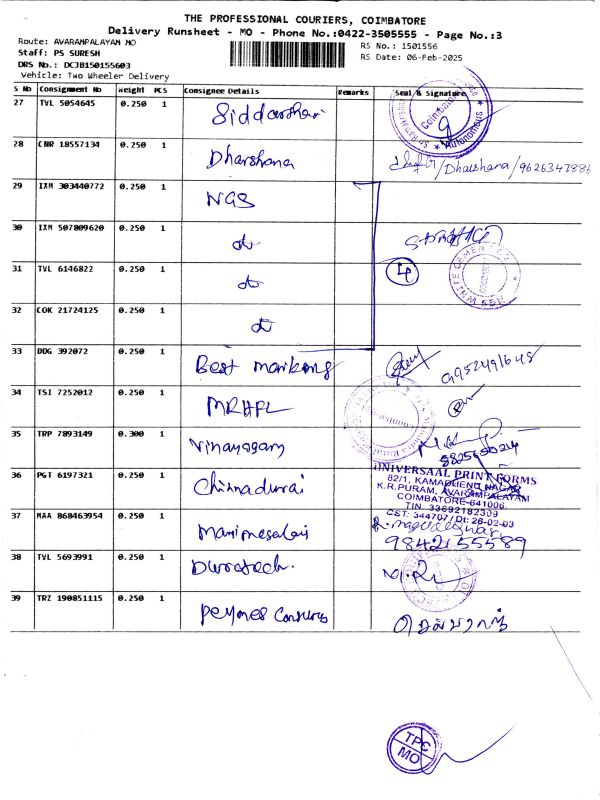 THE PROFESSIONAL COURIERS, COIMBATORE
Delivery Runsheet - MO - Phone No.:0422-3505555 - Page No.:3
Route: AVARAMPALAYAM MO
RS No.: 1501556
Staff: PS SURESH
RS Date: 06-Feb-2025
DRS No.: DCJB150155603
Vehicle: Two Wheeler Delivery
S No Consignment No Weight PCS Consignee Details Remarks Seal & Signature
27 TVL 5054645 0.250 1
Coimbatore
Autonomous
28 CNR 18557134 0.250 1 Dharshana
/Dharshana/9626347886
29 IXM 303440772 0.250 1 NGS
30 IXM 507809620 0.250 1 do
31 TVL 6146822 0.250 1 do
4
32 COK 21724125 0.250 1 do
33 DDG 392072 0.250 1 Best
9952491648
34 TSI 7252012 0.250 1 MRHFL
35 TRP 7893149 0.300 1 Vinayagam
36 PGT 6197321 0.250 1 Chinnadurai
UNIVERSAAL PRINT FORMS
82/1, KAMADHENU NAGAR
K.R.PURAM, AVARAMPALAYAM
COIMBATORE-641006
TIN. 33692182309
CST: 344707/Dt: 26-02-03
37 MAA 868463954 0.250 1
9842155589
38 TVL 5693991 0.250 1 Duratech.
39 TRZ 190851115 0.250 1
TPC
MO